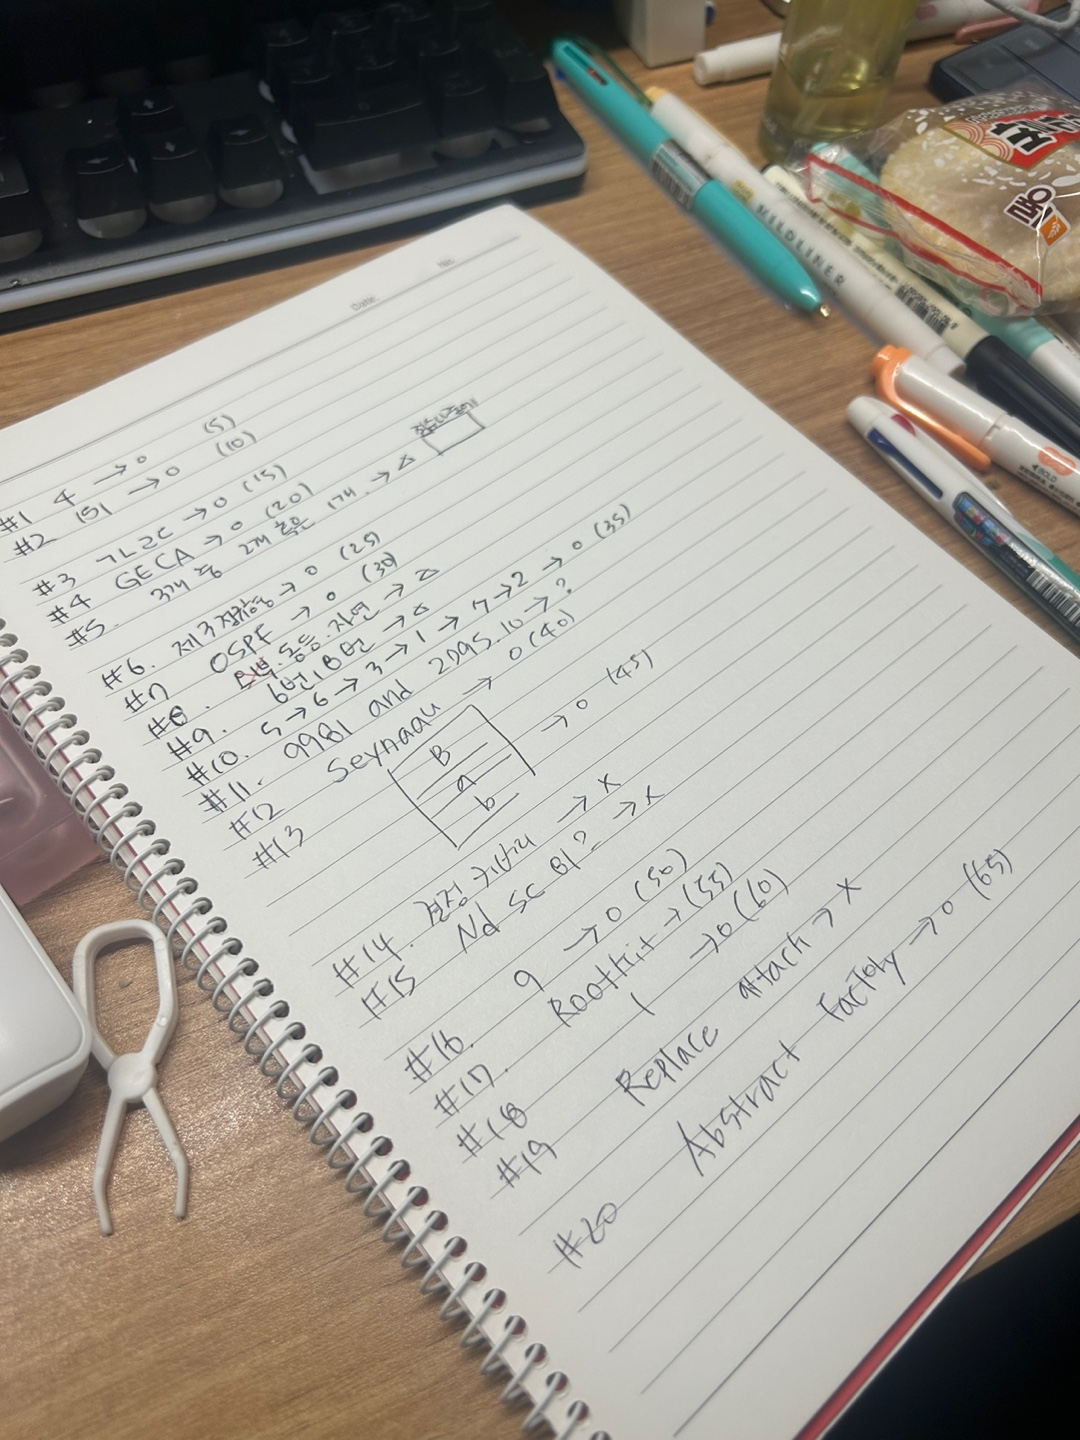 No.
Date
#1 4 → O (5)
#2 151 → O (10)
#3 ㄱㄴㄹㄷ → O (15)
#4 GECA → O (20)
#5. 3개 중 2개 혹은 1개. → △
#6. 제3정규형 → O (25)
#7 OSPF → O (30)
#8. 동등. 자연 → △
#9. 6번, 8번 → △
#10. 5 → 6 → 3 → 1 → 7 → 2 → O (35)
#11. 9981 and 2095.10 → ?
#12 Seynaau → O (40)
#13 B a b → O (45)
#14. 결정 커버리 → X
#15 Nd SC 비? → X
#16. 9 → O (50)
#17. Rootkit → (55)
#18 1 → O (60)
#19 Replace attach → X
#20 Abstract Factory → O (65)
WILDLINER